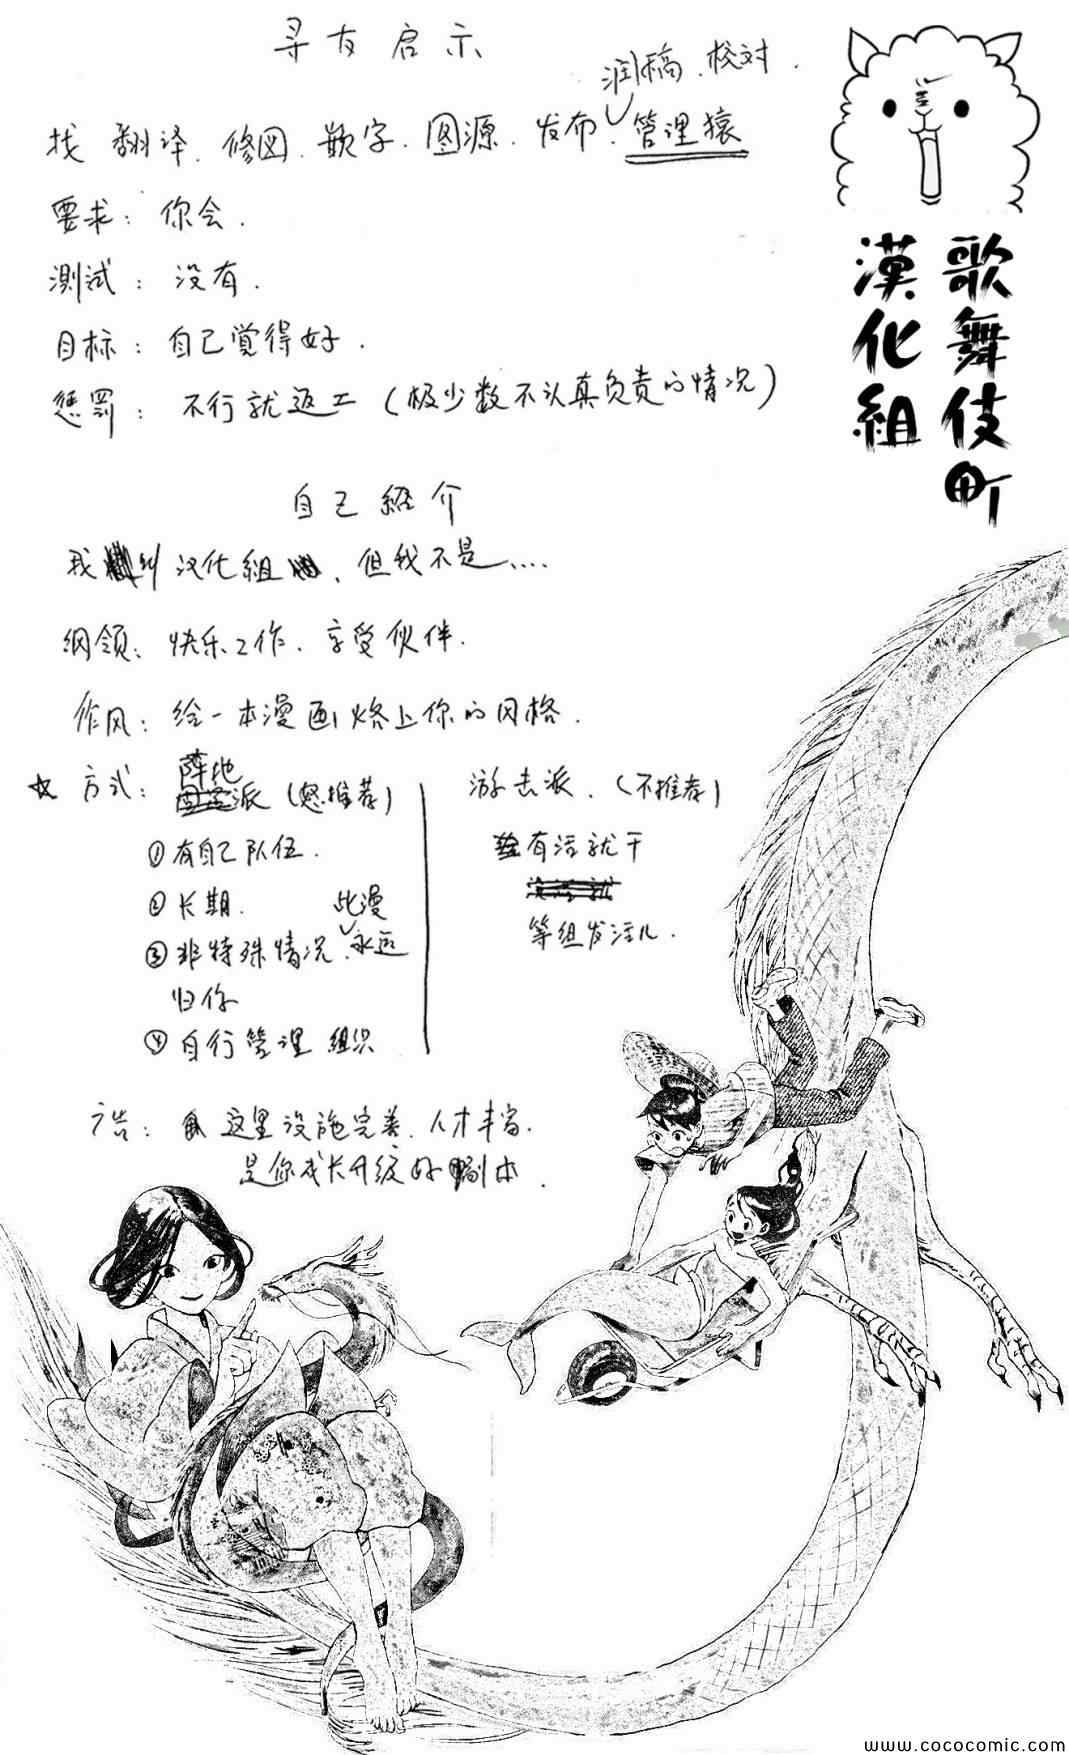 寻友启示
润稿、校对.
找 翻译、修图、嵌字、图源、发布、管理猿
要求：你会.
测试：没有.
目标：自己觉得好.
惩罚：不行就返工（极少数不认真负责的情况）
歌舞伎町
漢化組
自己紹介
我叫汉化組、但我不是....
纲领：快乐工作、享受伙伴.
作风：给一本漫画烙上你的风格.
☆ 方式：阵地派（怒推荐）
①有自己队伍.
②长期.
③非特殊情况、此漫永远
归你
④自行管理 组织
游击派、（不推荐）
有活就干
等组发活儿.
广告：这里设施完善、人才丰富.
是你成长升级好副本.
www.cococomic.com